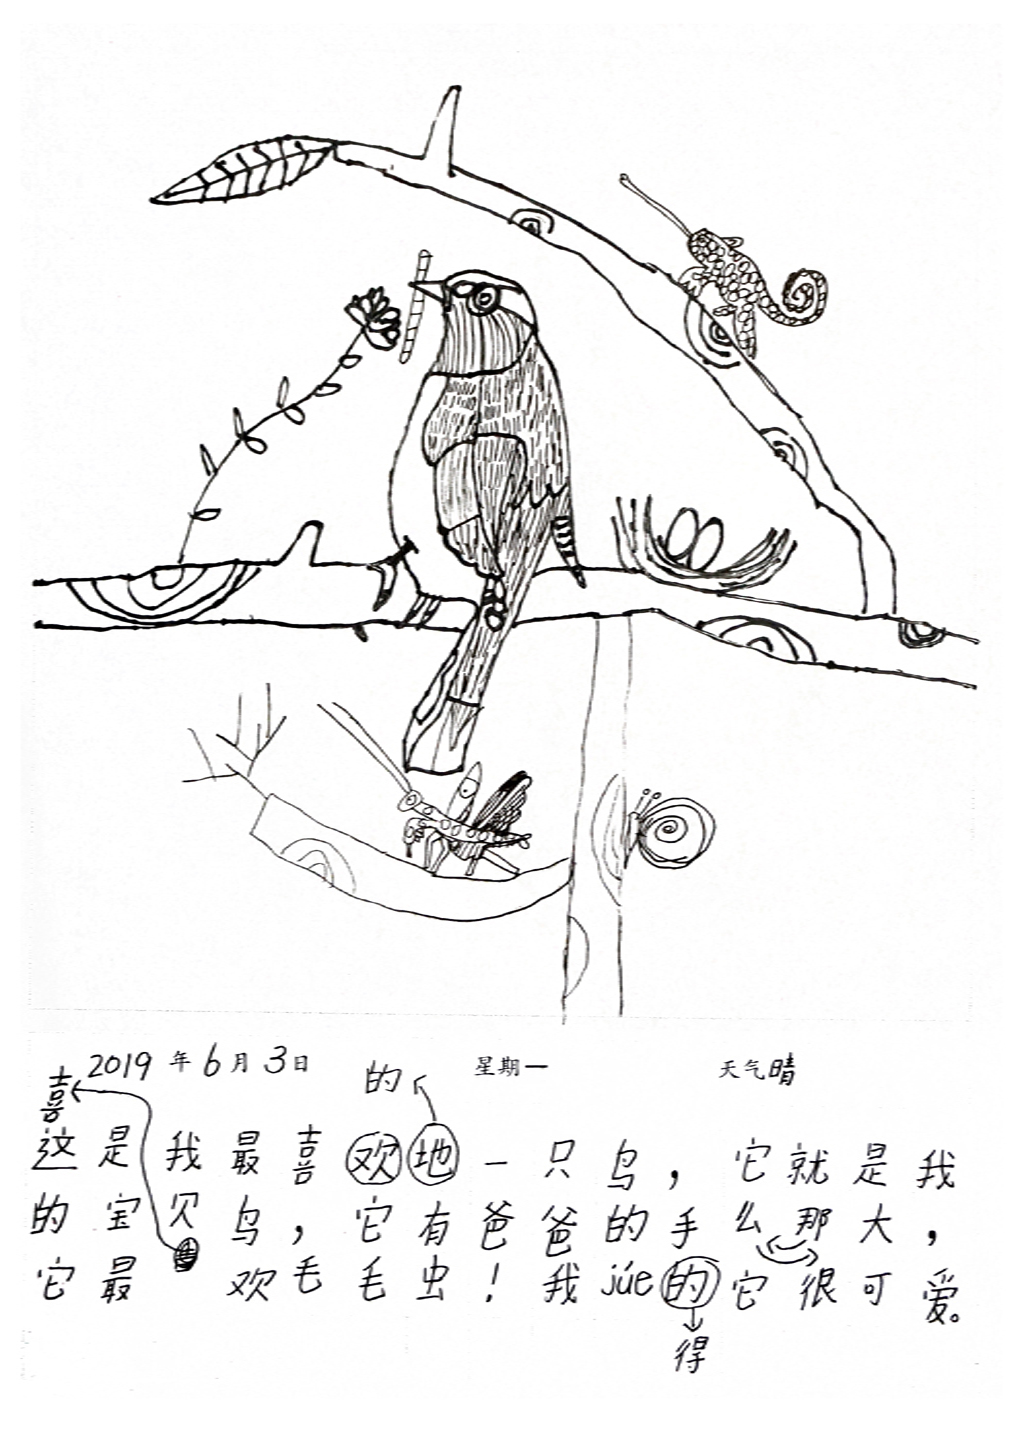 2019年6月3日 星期一 天气晴
的
喜
这是我最喜欢地一只鸟，它就是我
的宝贝鸟，它有爸爸的手么那大，
它最 欢毛毛虫！我júe的它很可爱。
得